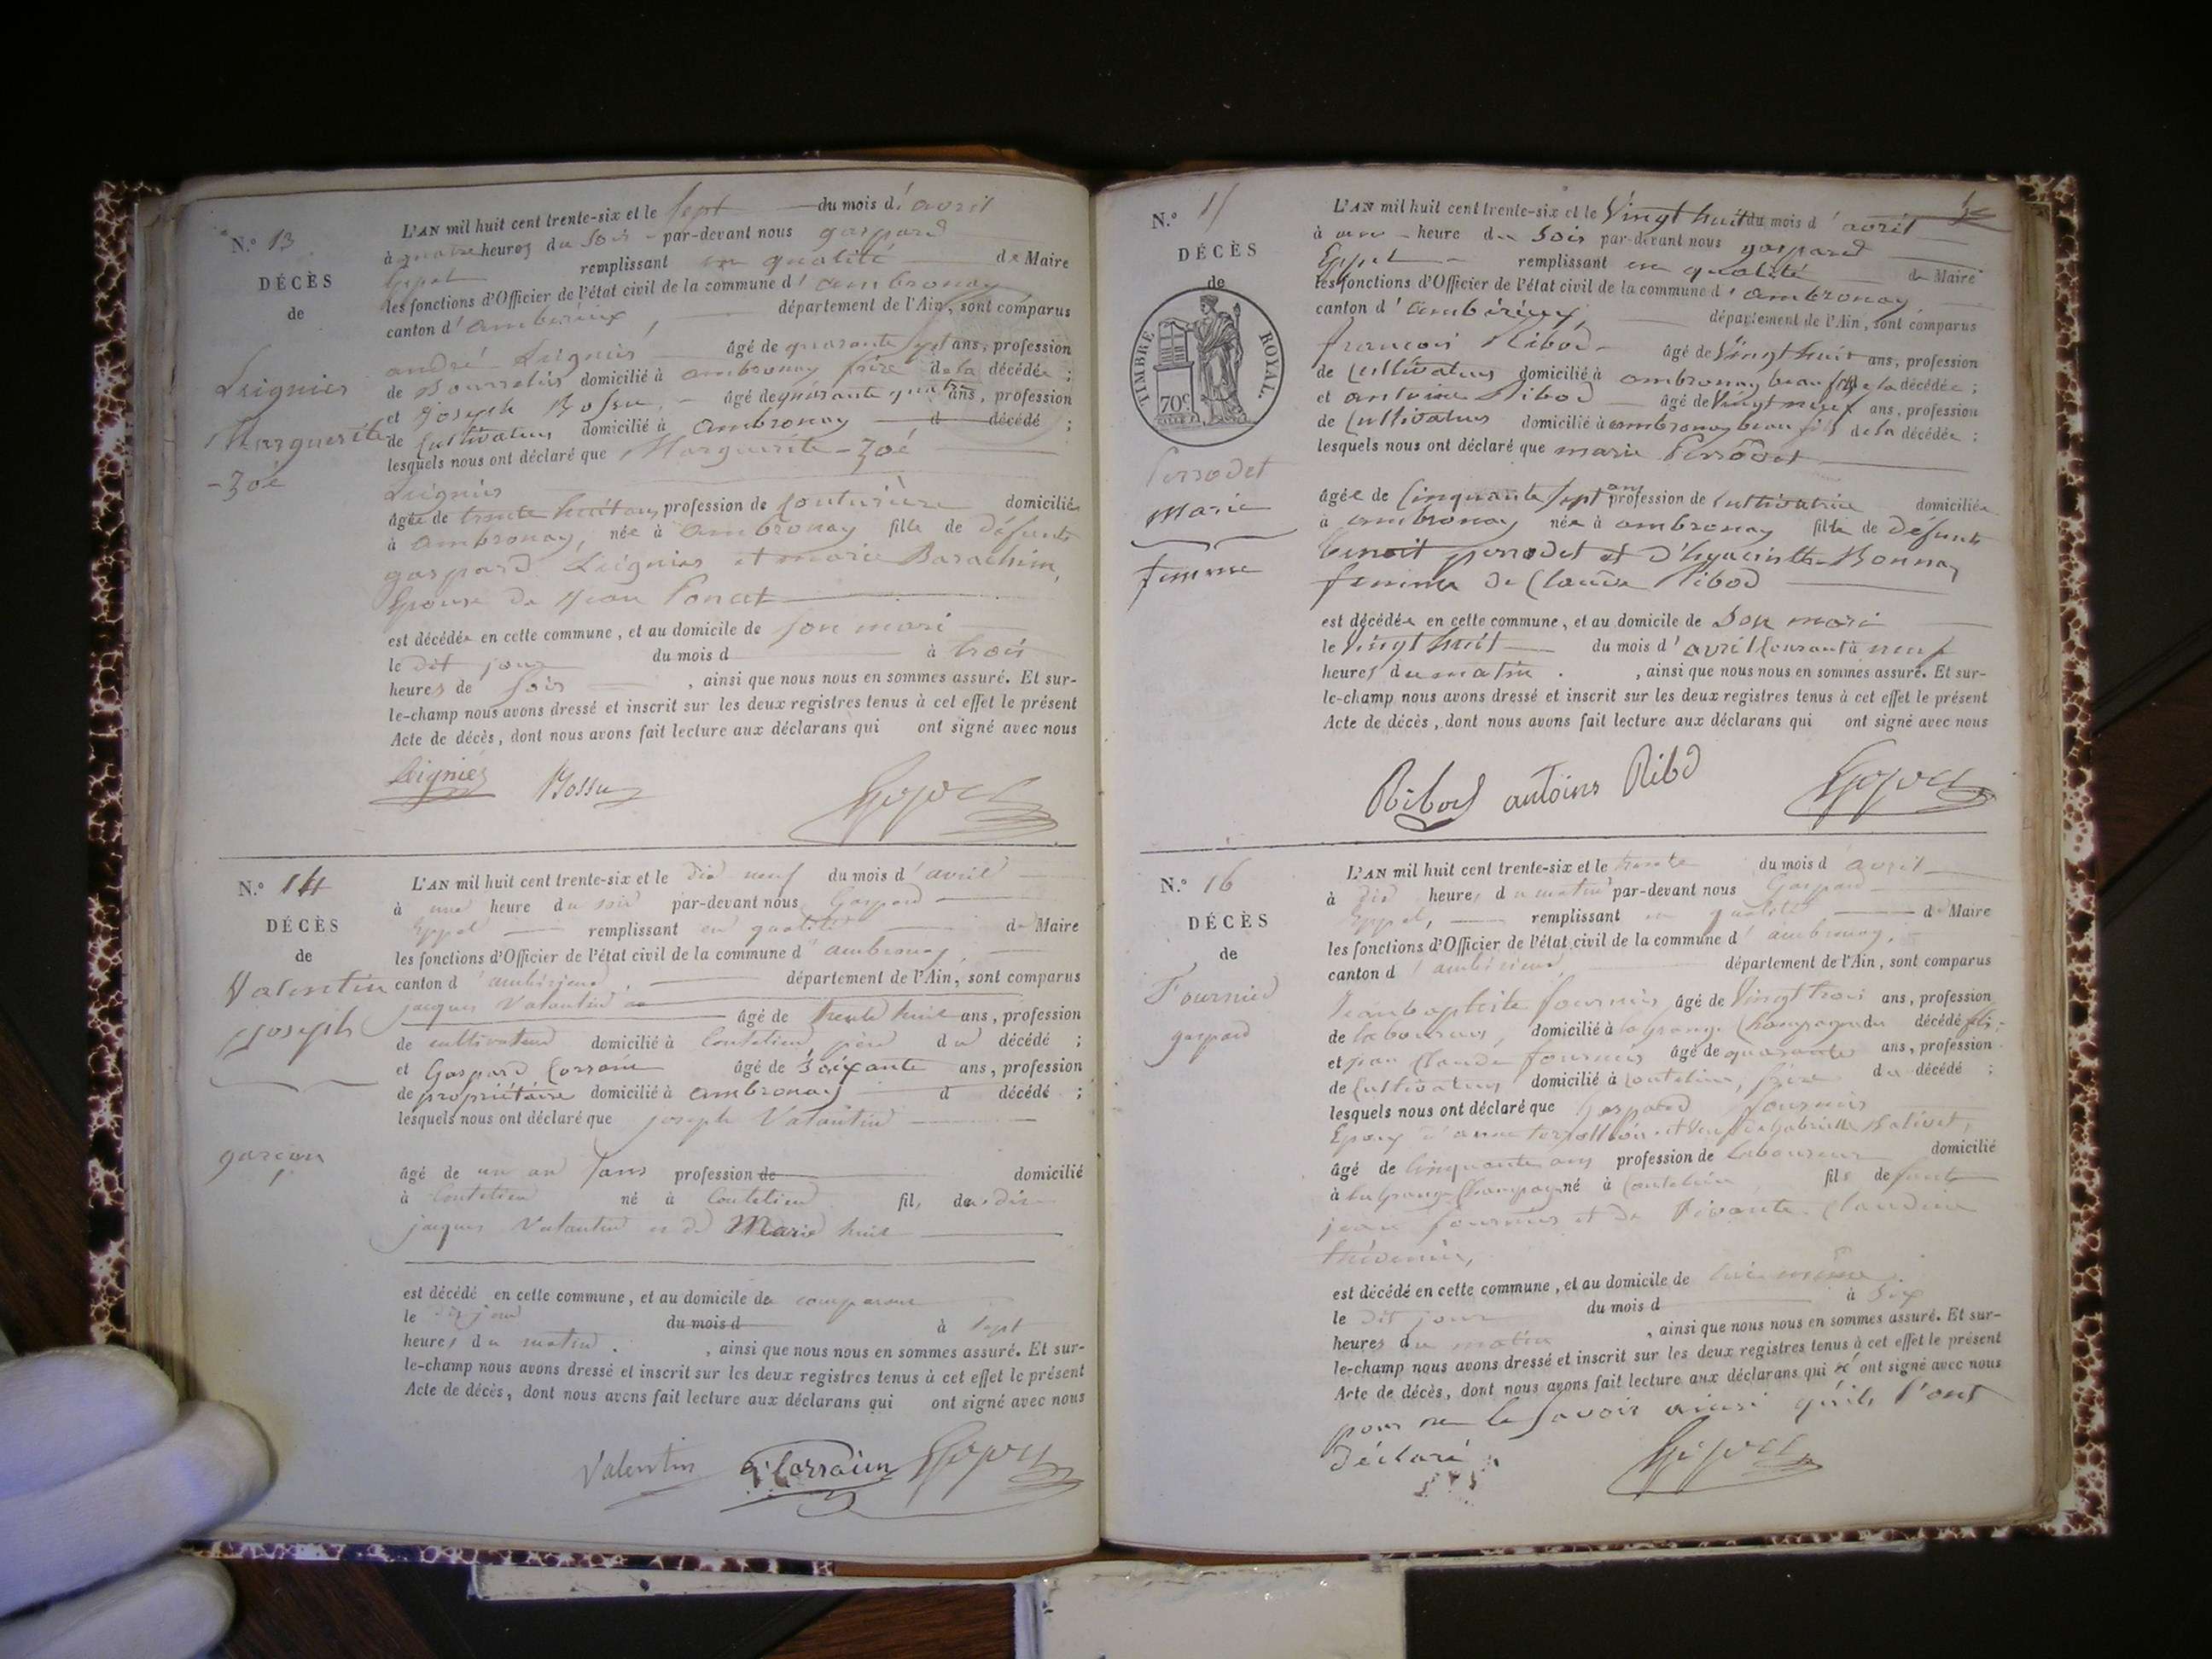 N.° 13
DÉCÈS
de
Leignier
Marguerite
-Zoé
L'AN mil huit cent trente-six et le sept du mois d'avril
à quatre heures du soir par-devant nous gaspard
Eppel remplissant en qualité de Maire
les fonctions d'Officier de l'état civil de la commune d'ambronay
canton d'ambérieux, département de l'Ain, sont comparus
andré Leignier âgé de quarante sept ans, profession
de Bourrelier domicilié à ambronay frère de la décédée ;
et Joseph Bossu, âgé de quarante quatre ans, profession
de Cultivateur domicilié à ambronay d décédé ;
lesquels nous ont déclaré que Marguerite-Zoé
Leignier
âgée de trente huit ans, profession de Couturière domiciliée
à ambronay, née à ambronay fille de défunts
gaspard Leignier et marie Barachin,
Epouse de Jean Poncet
est décédée en cette commune, et au domicile de son mari
le dit jour du mois d à trois
heures de soir, ainsi que nous nous en sommes assuré. Et sur-
le-champ nous avons dressé et inscrit sur les deux registres tenus à cet effet le présent
Acte de décès, dont nous avons fait lecture aux déclarans qui ont signé avec nous
Leignier Bossu Eppel
N.° 14
DÉCÈS
de
Valentin
Joseph
garçon
L'AN mil huit cent trente-six et le dix neuf du mois d'avril
à une heure du soir par-devant nous Gaspard
Eppel remplissant en qualité de Maire
les fonctions d'Officier de l'état civil de la commune d'ambronay,
canton d'ambérieux, département de l'Ain, sont comparus
jacques Valentin
âgé de trente huit ans, profession
de cultivateur domicilié à Coutelieu père du décédé ;
et Gaspard Corrain âgé de soixante ans, profession
de propriétaire domicilié à ambronay d décédé ;
lesquels nous ont déclaré que joseph Valentin
âgé de un an profession de domicilié
à Coutelieu né à Coutelieu fils du dit
jacques Valentin et de Marie
est décédé en cette commune, et au domicile de comparant
le dit jour du mois d à sept
heures du matin, ainsi que nous nous en sommes assuré. Et sur-
le-champ nous avons dressé et inscrit sur les deux registres tenus à cet effet le présent
Acte de décès, dont nous avons fait lecture aux déclarans qui ont signé avec nous
Valentin G. Corrain Eppel
N.° 15
DÉCÈS
de
TIMBRE ROYAL.
70c
Perrodet
Marie
femme
L'AN mil huit cent trente-six et le Vingt huit du mois d'avril
à une heure du soir par-devant nous gaspard
Eppel remplissant en qualité de Maire
les fonctions d'Officier de l'état civil de la commune d'ambronay,
canton d'ambérieux, département de l'Ain, sont comparus
françois Ribod âgé de Vingt huit ans, profession
de Cultivateur domicilié à ambronay beau fils de la décédée ;
et antoine Ribod âgé de Vingt neuf ans, profession
de Cultivateur domicilié à ambronay beau fils de la décédée ;
lesquels nous ont déclaré que marie Perrodet
âgée de Cinquante sept ans profession de Cultivatrice domiciliée
à ambronay née à ambronay fille de défunts
benoit perrodet et d'hyacinthe Bonnaz
femme de Claude Ribod
est décédée en cette commune, et au domicile de son mari
le Vingt huit du mois d'avril Courant à neuf
heures du matin, ainsi que nous nous en sommes assuré. Et sur-
le-champ nous avons dressé et inscrit sur les deux registres tenus à cet effet le présent
Acte de décès, dont nous avons fait lecture aux déclarans qui ont signé avec nous
Ribod antoine Ribod Eppel
N.° 16
DÉCÈS
de
Fournier
gaspard
L'AN mil huit cent trente-six et le trente du mois d'avril
à dix heures du matin par-devant nous Gaspard
Eppel, remplissant en qualité de Maire
les fonctions d'Officier de l'état civil de la commune d'ambronay,
canton d'ambérieux, département de l'Ain, sont comparus
Jean baptiste fournier âgé de Vingt trois ans, profession
de laboureur, domicilié à la grange Champagne du décédé fils ;
et jean Claude fournier âgé de quarante ans, profession
de Cultivateur domicilié à Coutelieu, frère du décédé ;
lesquels nous ont déclaré que Gaspard fournier
Epoux d'anne et veuf de Gabrielle Balivet,
âgé de Cinquante ans profession de laboureur domicilié
à la Grange Champagne né à Coutelieu fils de feu
jean fournier et de Vivante Claudine
thévenin,
est décédé en cette commune, et au domicile de lui même
le dit jour du mois d à six
heures du matin, ainsi que nous nous en sommes assuré. Et sur-
le-champ nous avons dressé et inscrit sur les deux registres tenus à cet effet le présent
Acte de décès, dont nous avons fait lecture aux déclarans qui n'ont signé avec nous
pour ne le savoir ainsi qu'ils l'ont
déclaré. Eppel